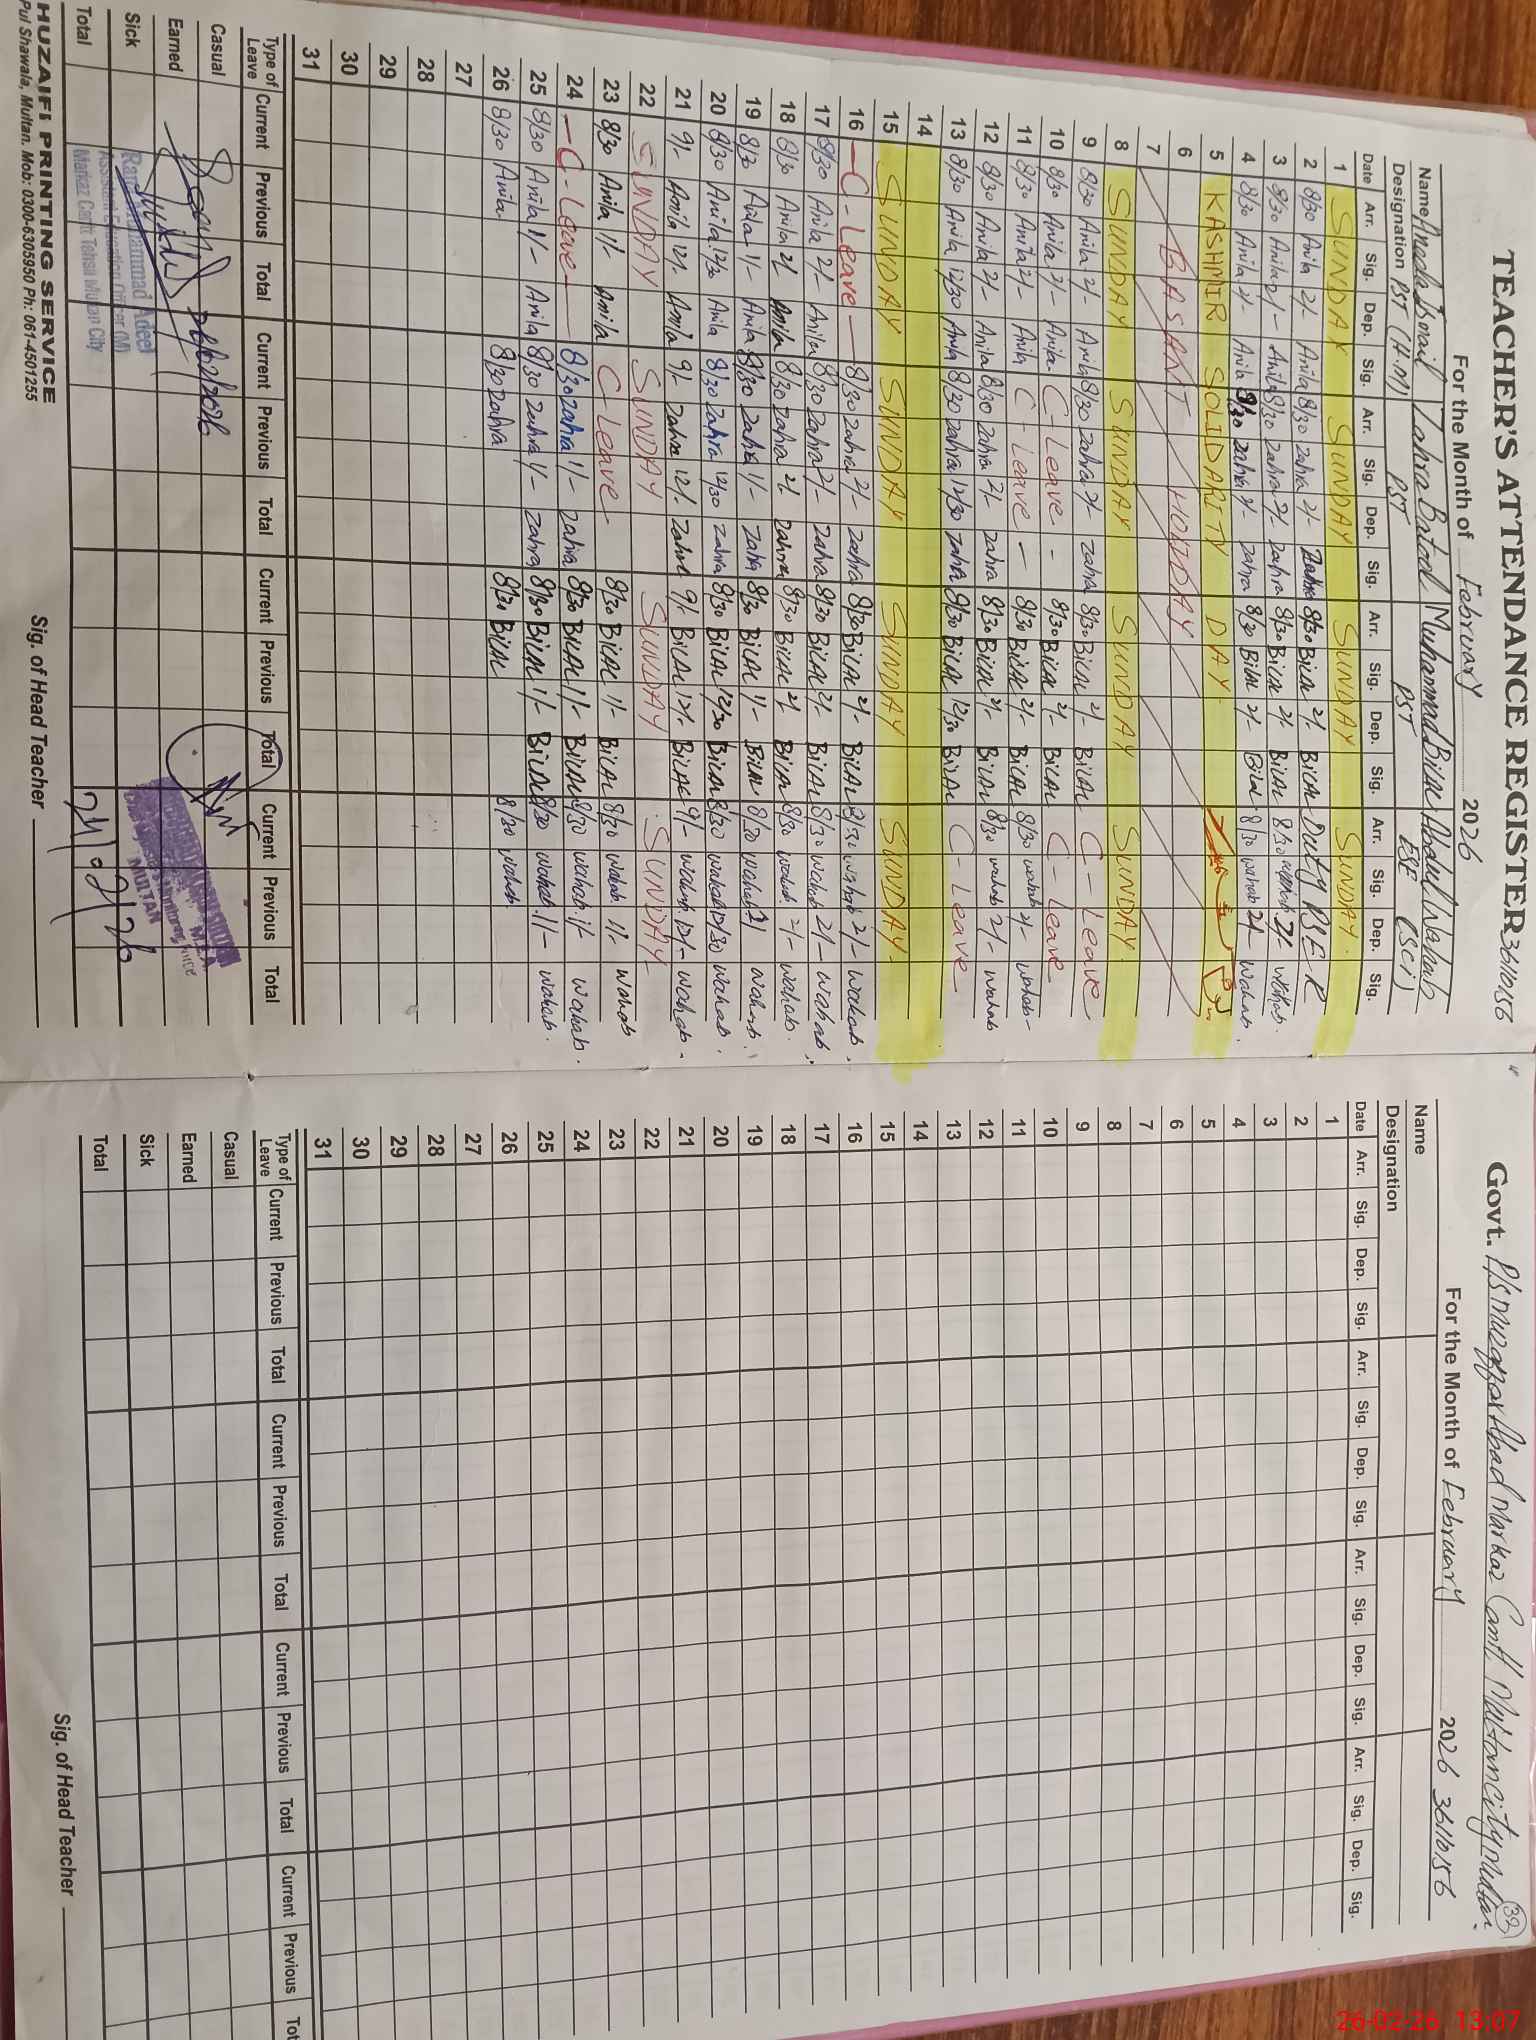 TEACHER'S ATTENDANCE REGISTER 36110156
For the Month of February 2026
Name Zahra Batool Muhammad Bilal Abdul Wahab
Designation PST (H.M) PST PST ESE (Sci)
Date Arr. Sig. Dep. Sig. Arr. Sig. Dep. Sig. Arr. Sig. Dep. Sig. Arr. Sig. Dep. Sig.
1 SUNDAY SUNDAY SUNDAY SUNDAY
2 8/30 Anila 2/- Anila 8/30 Zahra 2/- Zahra 8/30 Bilal 2/- Bilal Duty
3 8/30 Anila 2/- Anila 8/30 Zahra 2/- Zahra 8/30 Bilal 2/- Bilal 8/30 wahab 2/- wahab.
4 8/30 Anila 2/- Anila 8/30 Zahra 2/- Zahra 8/30 Bilal 2/- Bilal 8/30 wahab 2/- wahab.
5 KASHMIR SOLIDARITY DAY.
6 BASANT HOLIDAY
7
8 SUNDAY SUNDAY SUNDAY SUNDAY.
9 8/30 Anila 2/- Anila 8/30 Zahra 2/- Zahra 8/30 Bilal 2/- Bilal C-Leave
10 8/30 Anila 2/- Anila C-Leave - 8/30 Bilal 2/- Bilal C-Leave
11 8/30 Anila 2/- Anila C-Leave - 8/30 Bilal 2/- Bilal 8/30 wahab 2/- wahab-
12 8/30 Anila 2/- Anila 8/30 Zahra 2/- Zahra 8/30 Bilal 2/- Bilal 8/30 wahab 2/- wahab
13 8/30 Anila 12/30 Anila 8/30 Zahra 12/30 Zahra 8/30 Bilal 12/30 Bilal C-Leave
14
15 SUNDAY SUNDAY SUNDAY SUNDAY-
16 -C-Leave- 8/30 Zahra 2/- Zahra 8/30 Bilal 2/- Bilal 8/30 wahab 2/- wahab.
17 8/30 Anila 2/- Anila 8/30 Zahra 2/- Zahra 8/30 Bilal 2/- Bilal 8/30 wahab 2/- wahab.
18 8/30 Anila 2/- Anila 8/30 Zahra 2/- Zahra 8/30 Bilal 2/- Bilal 8/30 wahab. 2/- wahab.
19 8/30 Anila 1/- Anila 8/30 Zahra 1/- Zahra 8/30 Bilal 1/- Bilal 8/30 wahab wahab.
20 8/30 Anila 12/30 Anila 8/30 Zahra 12/30 Zahra 8/30 Bilal 12/30 Bilal 8/30 wahab 12/30 wahab.
21 9/- Anila 12/- Anila 9/- Zahra 12/- Zahra 9/- Bilal 12/- Bilal 9/- wahab 12/- wahab.
22 SUNDAY SUNDAY SUNDAY SUNDAY-
23 8/30 Anila 1/- Anila C-Leave- 8/30 Bilal 1/- Bilal 8/30 wahab 1/- wahab
24 -C-Leave- 8/30 Zahra 1/- Zahra 8/30 Bilal 1/- Bilal 8/30 wahab 1/- wahab.
25 8/30 Anila 1/- Anila 8/30 Zahra 1/- Zahra 8/30 Bilal 1/- Bilal 8/30 wahab. 1/- wahab.
26 8/30 Anila 8/30 Zahra 8/30 Bilal 8/30 wahab.
27
28
29
30
31
Type of Leave Current Previous Total Current Previous Total Current Previous Total Current Previous Total
Casual
26/02/2026
Earned
Sick
Muhammad Adeel
Assistant Education Officer (M)
Markaz Cantt Tehsil Multan City
MULTAN
Total
24/02/26
Sig. of Head Teacher
HUZAIFI PRINTING SERVICE
Pul Shawala, Multan. Mob: 0300-6305950 Ph: 061-4501255
Govt. P/S Muzaffar Abad Markaz Cantt. Multan City Multan. 32
For the Month of February 2026 36110156
Name
Designation
Date Arr. Sig. Dep. Sig. Arr. Sig. Dep. Sig. Arr. Sig. Dep. Sig. Arr. Sig. Dep. Sig.
1
2
3
4
5
6
7
8
9
10
11
12
13
14
15
16
17
18
19
20
21
22
23
24
25
26
27
28
29
30
31
Type of Leave Current Previous Total Current Previous Total Current Previous Total Current Previous Tot
Casual
Earned
Sick
Total
Sig. of Head Teacher
26-02-26 13:07